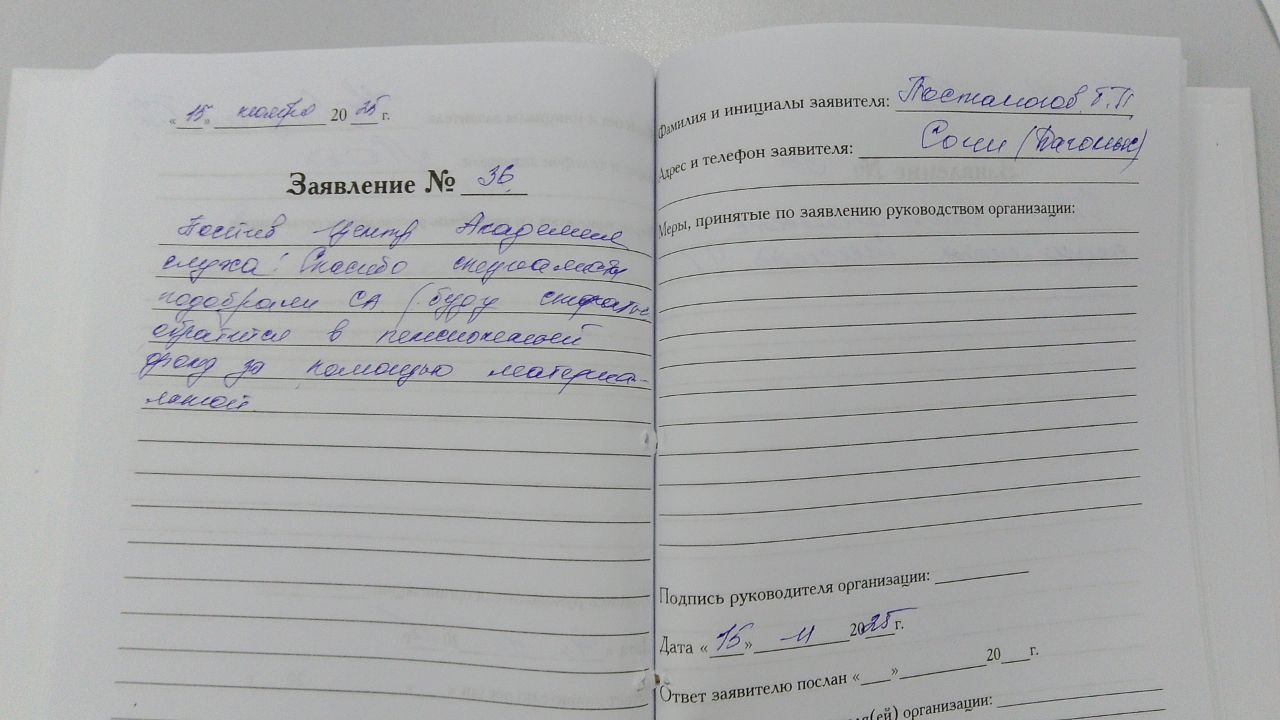 «15» ноября 20 25 г.
Заявление № 36
Посетив центр Академия
слуха! Спасибо специалисту
подобрали СА (буду стараться
обратится в пенсионный
фонд за помощью материа-
льной.
Фамилия и инициалы заявителя: Г.П
Адрес и телефон заявителя: Сочи (Дагомыс)
Меры, принятые по заявлению руководством организации:
Подпись руководителя организации:
Дата «15» 11 2025 г.
Ответ заявителю послан «___» 20___г.
я(ей) организации: